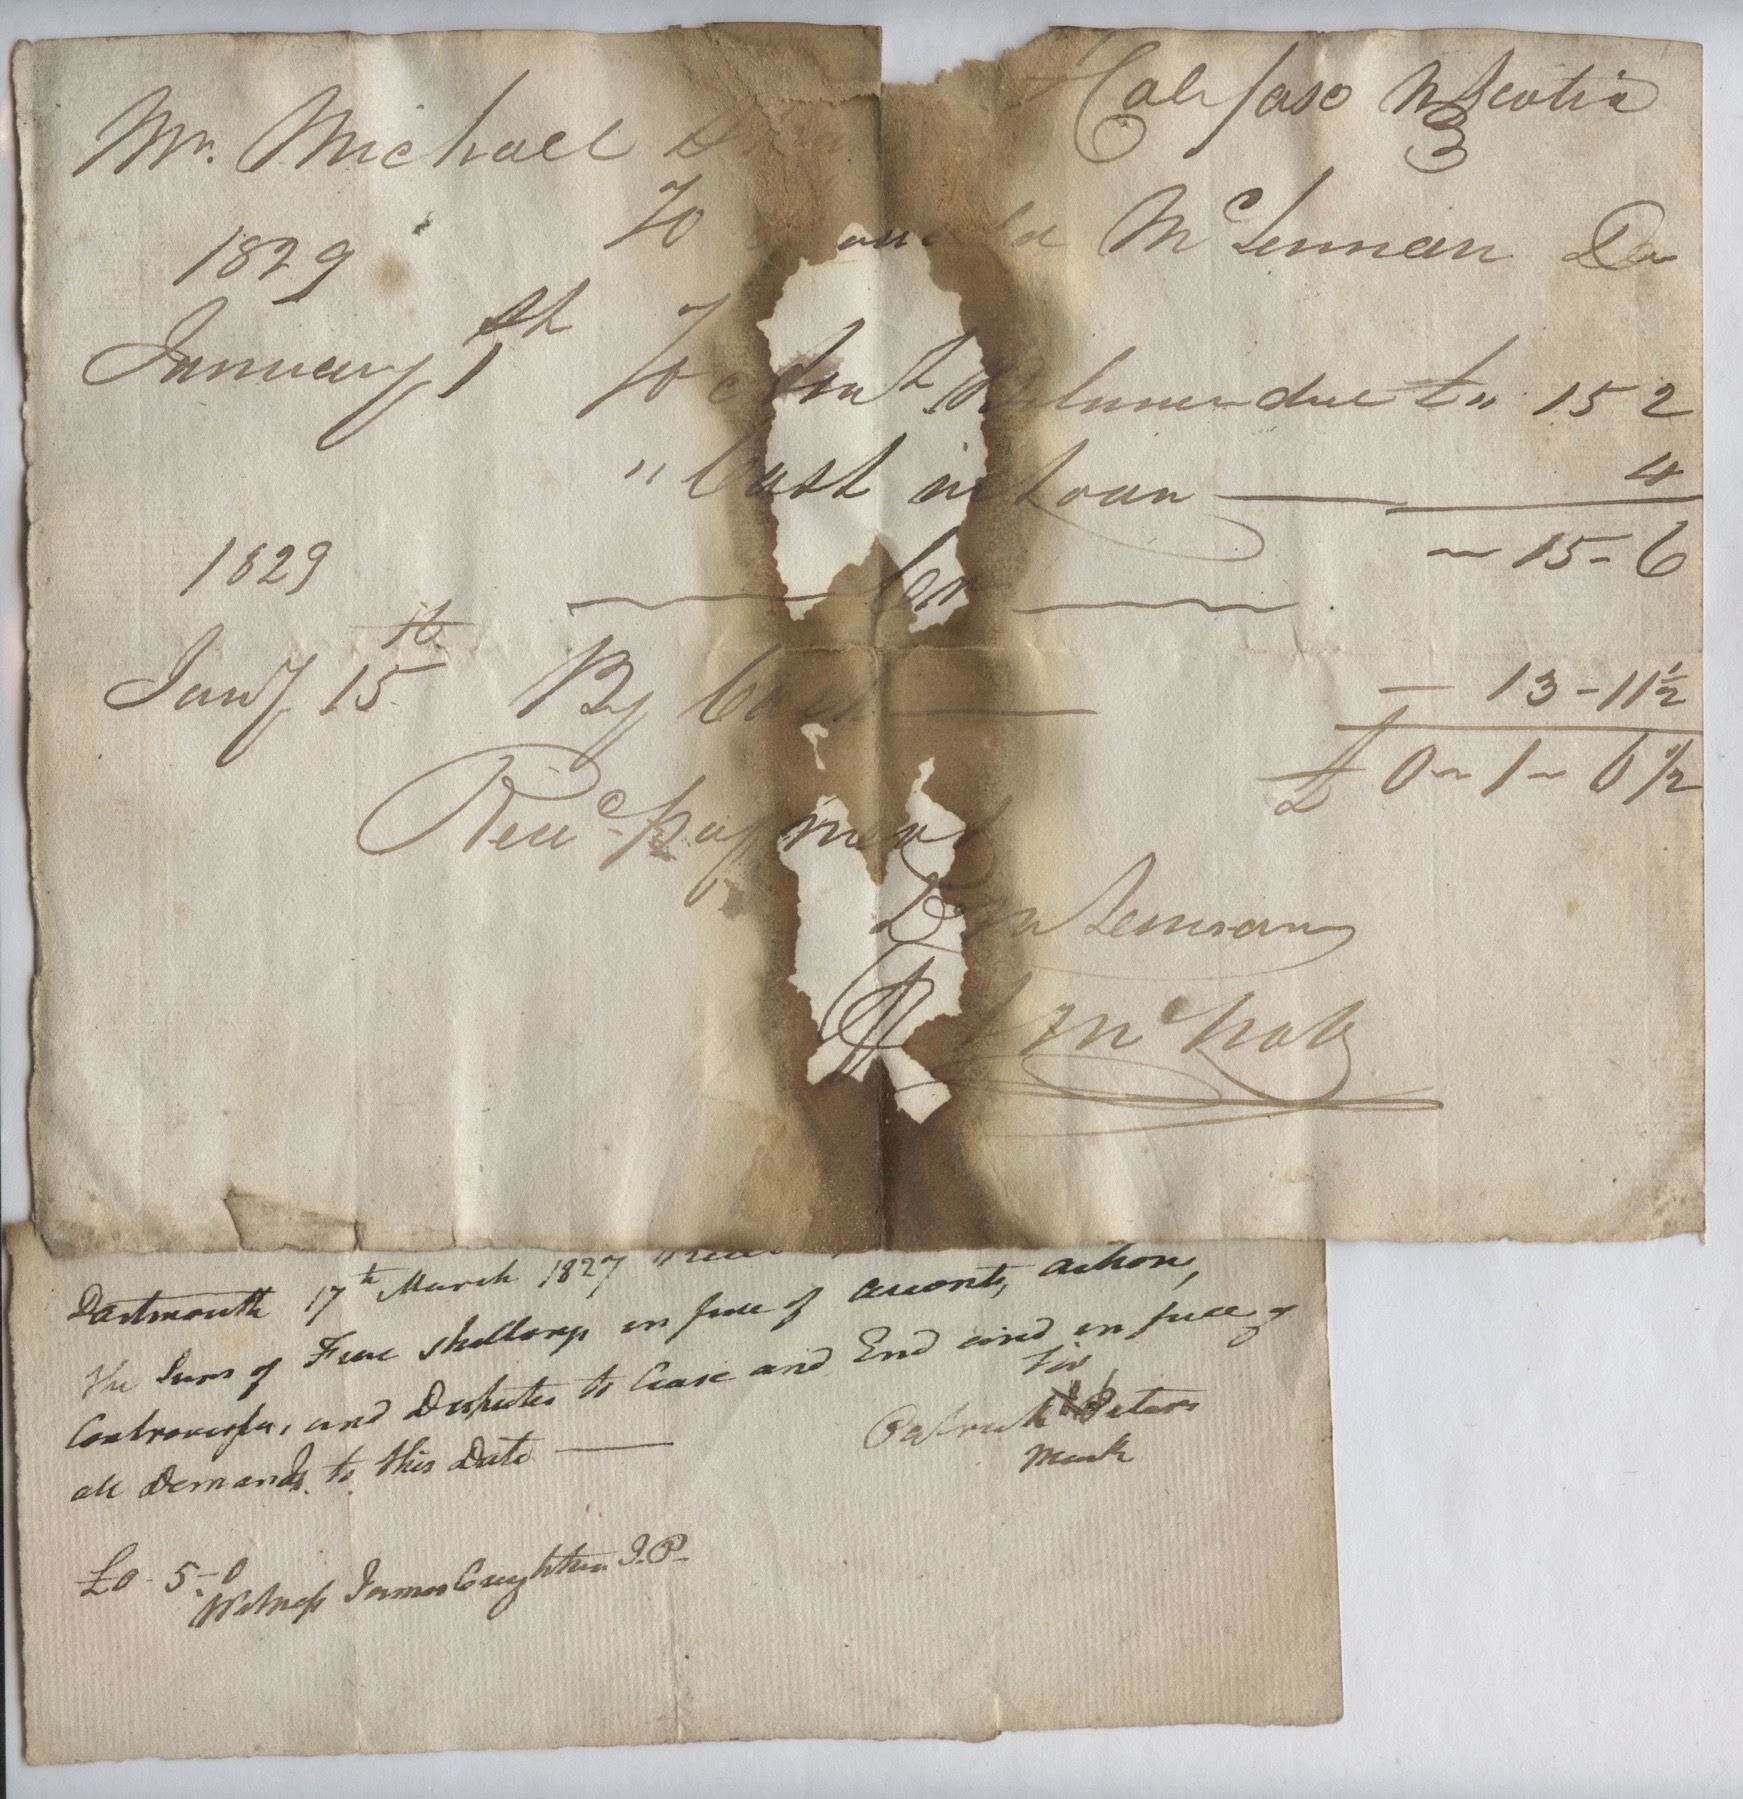 Halifax N Scotia
Mr. Michael
3
To Donald McLennan Dr
1829
January 1st To Amt Balance due to " 15 2
" Cash in Loan 4
~ 15 - 6
1829
Cr
Jany 15th By Cash — 13 - 11½
£ 0 ~ 1 ~ 6½
Recd payment
D McLennan
McNab
Dartmouth 17th March 1827
the Sum of Five Shillings in full of accounts, action,
Controversies, and Disputes to Cease and End and in full of
all Demands to this Date —
his
Patrick Peters
mark
£0 - 5 - 0
Witness James Creighton J.P.